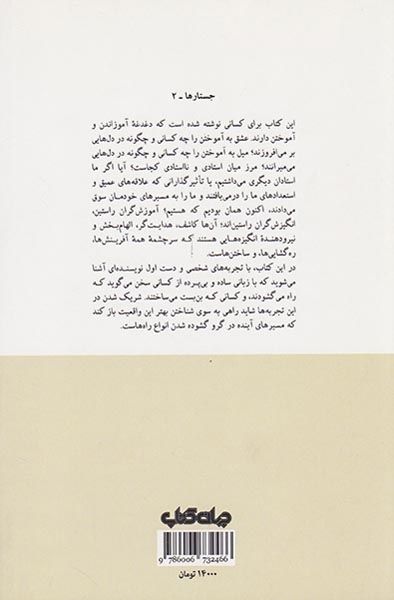 جستارها ـ ۲
این کتاب برای کسانی نوشته شده است که دغدغهٔ آموزاندن و
آموختن دارند. عشق به آموختن را چه کسانی و چگونه در دل‌هایی
بر می‌افروزند؛ میل به آموختن را چه کسانی و چگونه در دل‌هایی
می‌میرانند؛ مرز میان استادی و نااستادی کجاست؟ آیا اگر ما
استادان دیگری می‌داشتیم، یا تأثیرگذارانی که علاقه‌های عمیق و
استعدادهای ما را درمی‌یافتند و ما را به مسیرهای خودمان سوق
می‌دادند، اکنون همان بودیم که هستیم؟ آموزش‌گران راستین،
انگیزش‌گران راستین‌اند؛ آن‌ها کاشف، هدایت‌گر، الهام‌بخش و
نیرودهندهٔ انگیزه‌هایی هستند که سرچشمهٔ همهٔ آفرینش‌ها،
ره‌گشایی‌ها، و ساختن‌هاست.
در این کتاب، با تجربه‌های شخصی و دست اول نویسنده‌ای آشنا
می‌شوید که با زبانی ساده و بی‌پرده از کسانی سخن می‌گوید که
راه می‌گشودند، و کسانی که بن‌بست می‌ساختند. شریک شدن در
این تجربه‌ها شاید راهی به سوی شناختن بهتر این واقعیت باز کند
که مسیرهای آینده در گرو گشوده شدن انواع راه‌هاست.
جهان کتاب
9 786006 732466
۱۴۰۰۰ تومان